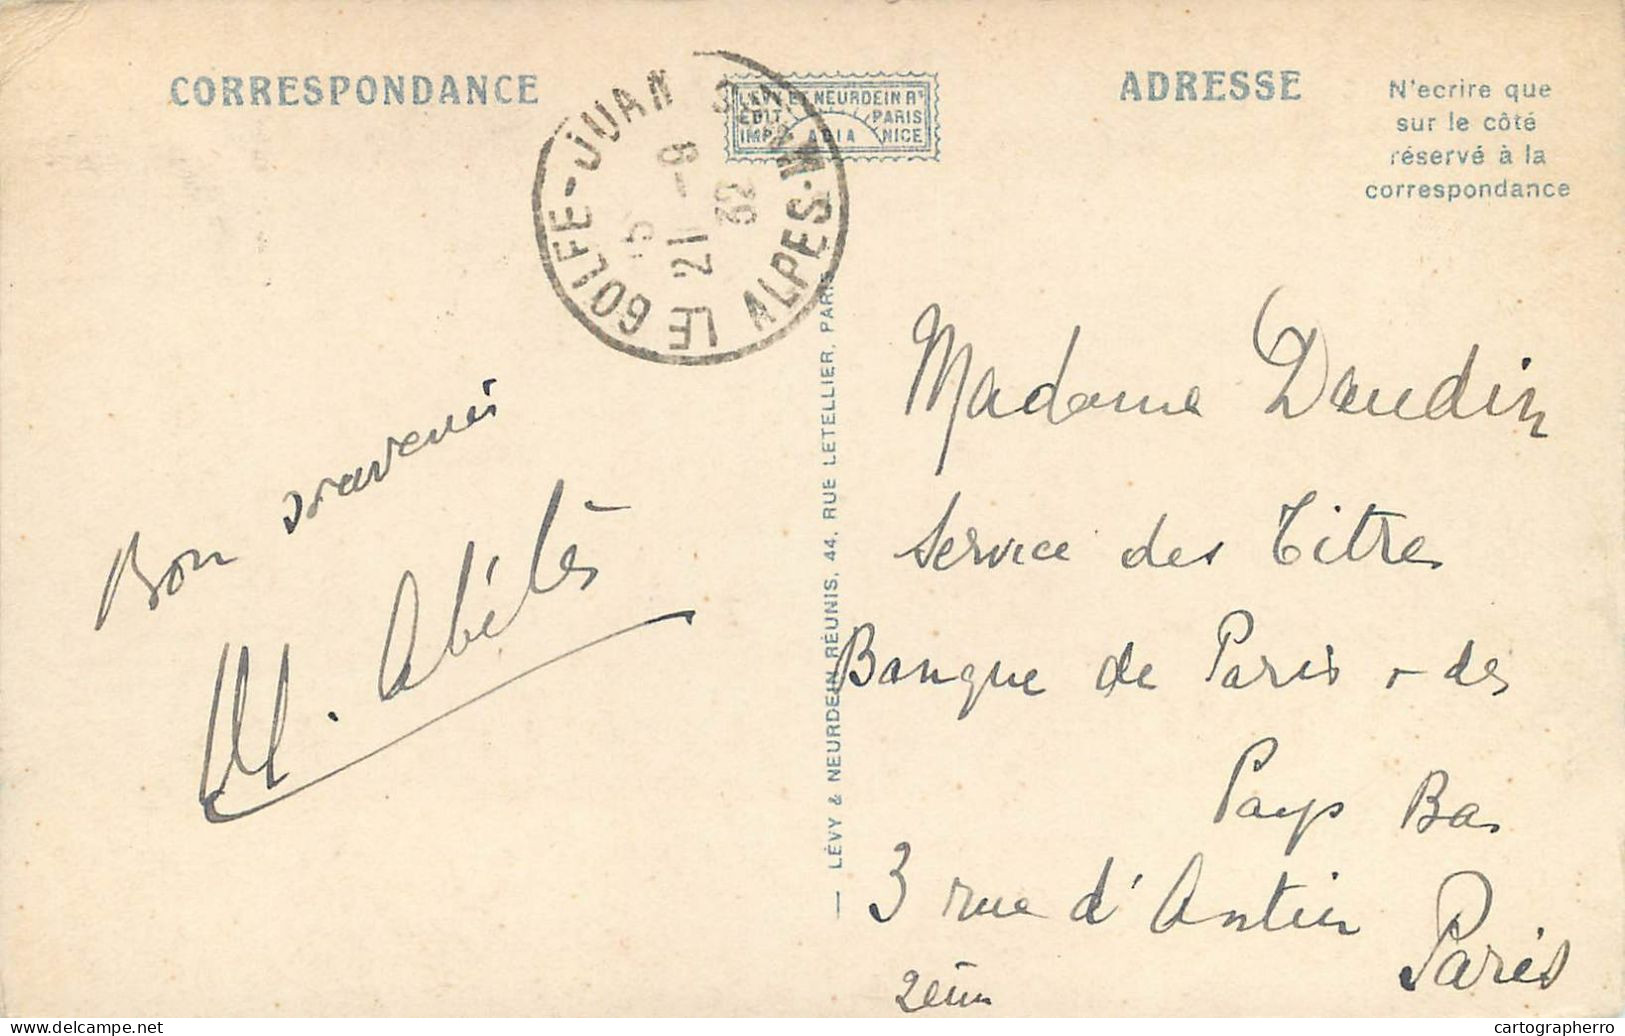 CORRESPONDANCE
ADRESSE
N'ecrire que
sur le côté
réservé à la
correspondance
LEVY ET NEURDEIN Rs
EDIT PARIS
IMP. ADIA NICE
LE GOLFE-JUAN
21 - 9
32
ALPES-M
— LÉVY & NEURDEIN RÉUNIS, 44, RUE LETELLIER, PARIS
Bon souvenir
M. Abélès
Madame Daudin
Service des Titres
Banque de Paris + des
Pays Bas
3 rue d'Antin
Paris
2ème
delcampe.net
cartographerro